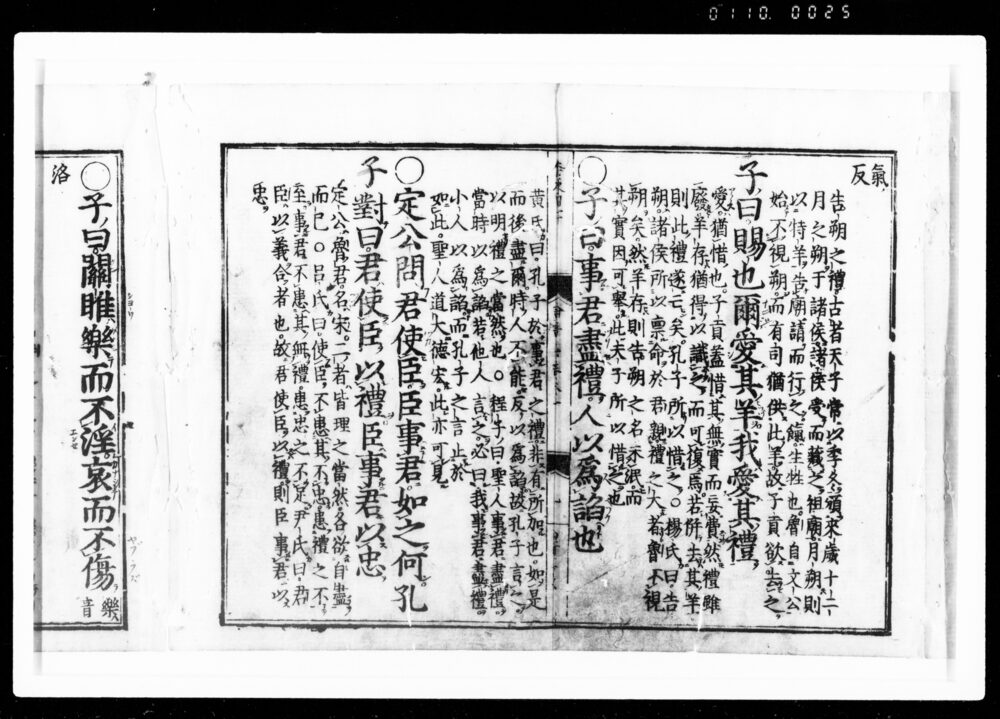 0110.0025
氣反
告朔之禮古者天子常以季冬頒來歲十二
月之朔于諸侯諸侯受而藏之祖廟月朔則
以特羊告廟請而行之餼生牲也魯自文公
始不視朔而有司猶供此羊故子貢欲去之
子曰賜也爾愛其羊我愛其禮
愛猶惜也子貢蓋惜其無實而妄費然禮雖
廢羊存猶得以識之而可復焉若併去其羊
則此禮遂亡矣孔子所以惜之○楊氏曰告
朔諸侯所以稟命於君親禮之大者魯不視
朔矣然羊存則告朔之名未泯而
其實因可舉此夫子所以惜之也
○子曰事君盡禮人以爲諂也
黄氏曰孔子於事君之禮非有所加也如是
而後盡爾時人不能反以爲諂故孔子言之
以明禮之當然也○程子曰聖人事君盡禮
當時以爲諂若他人言之必曰我事君盡禮
小人以爲諂而孔子之言止於
如此聖人道大德宏此亦可見
○定公問君使臣臣事君如之何孔
子對曰君使臣以禮臣事君以忠
定公魯君名宋二者皆理之當然各欲自盡
而已○呂氏曰使臣不患其不忠患禮之不
至事君不患其無禮患忠之不足尹氏曰君
臣以義合者也故君使臣以禮則臣事君以
忠
○子曰關雎樂而不淫哀而不傷
樂音
洛